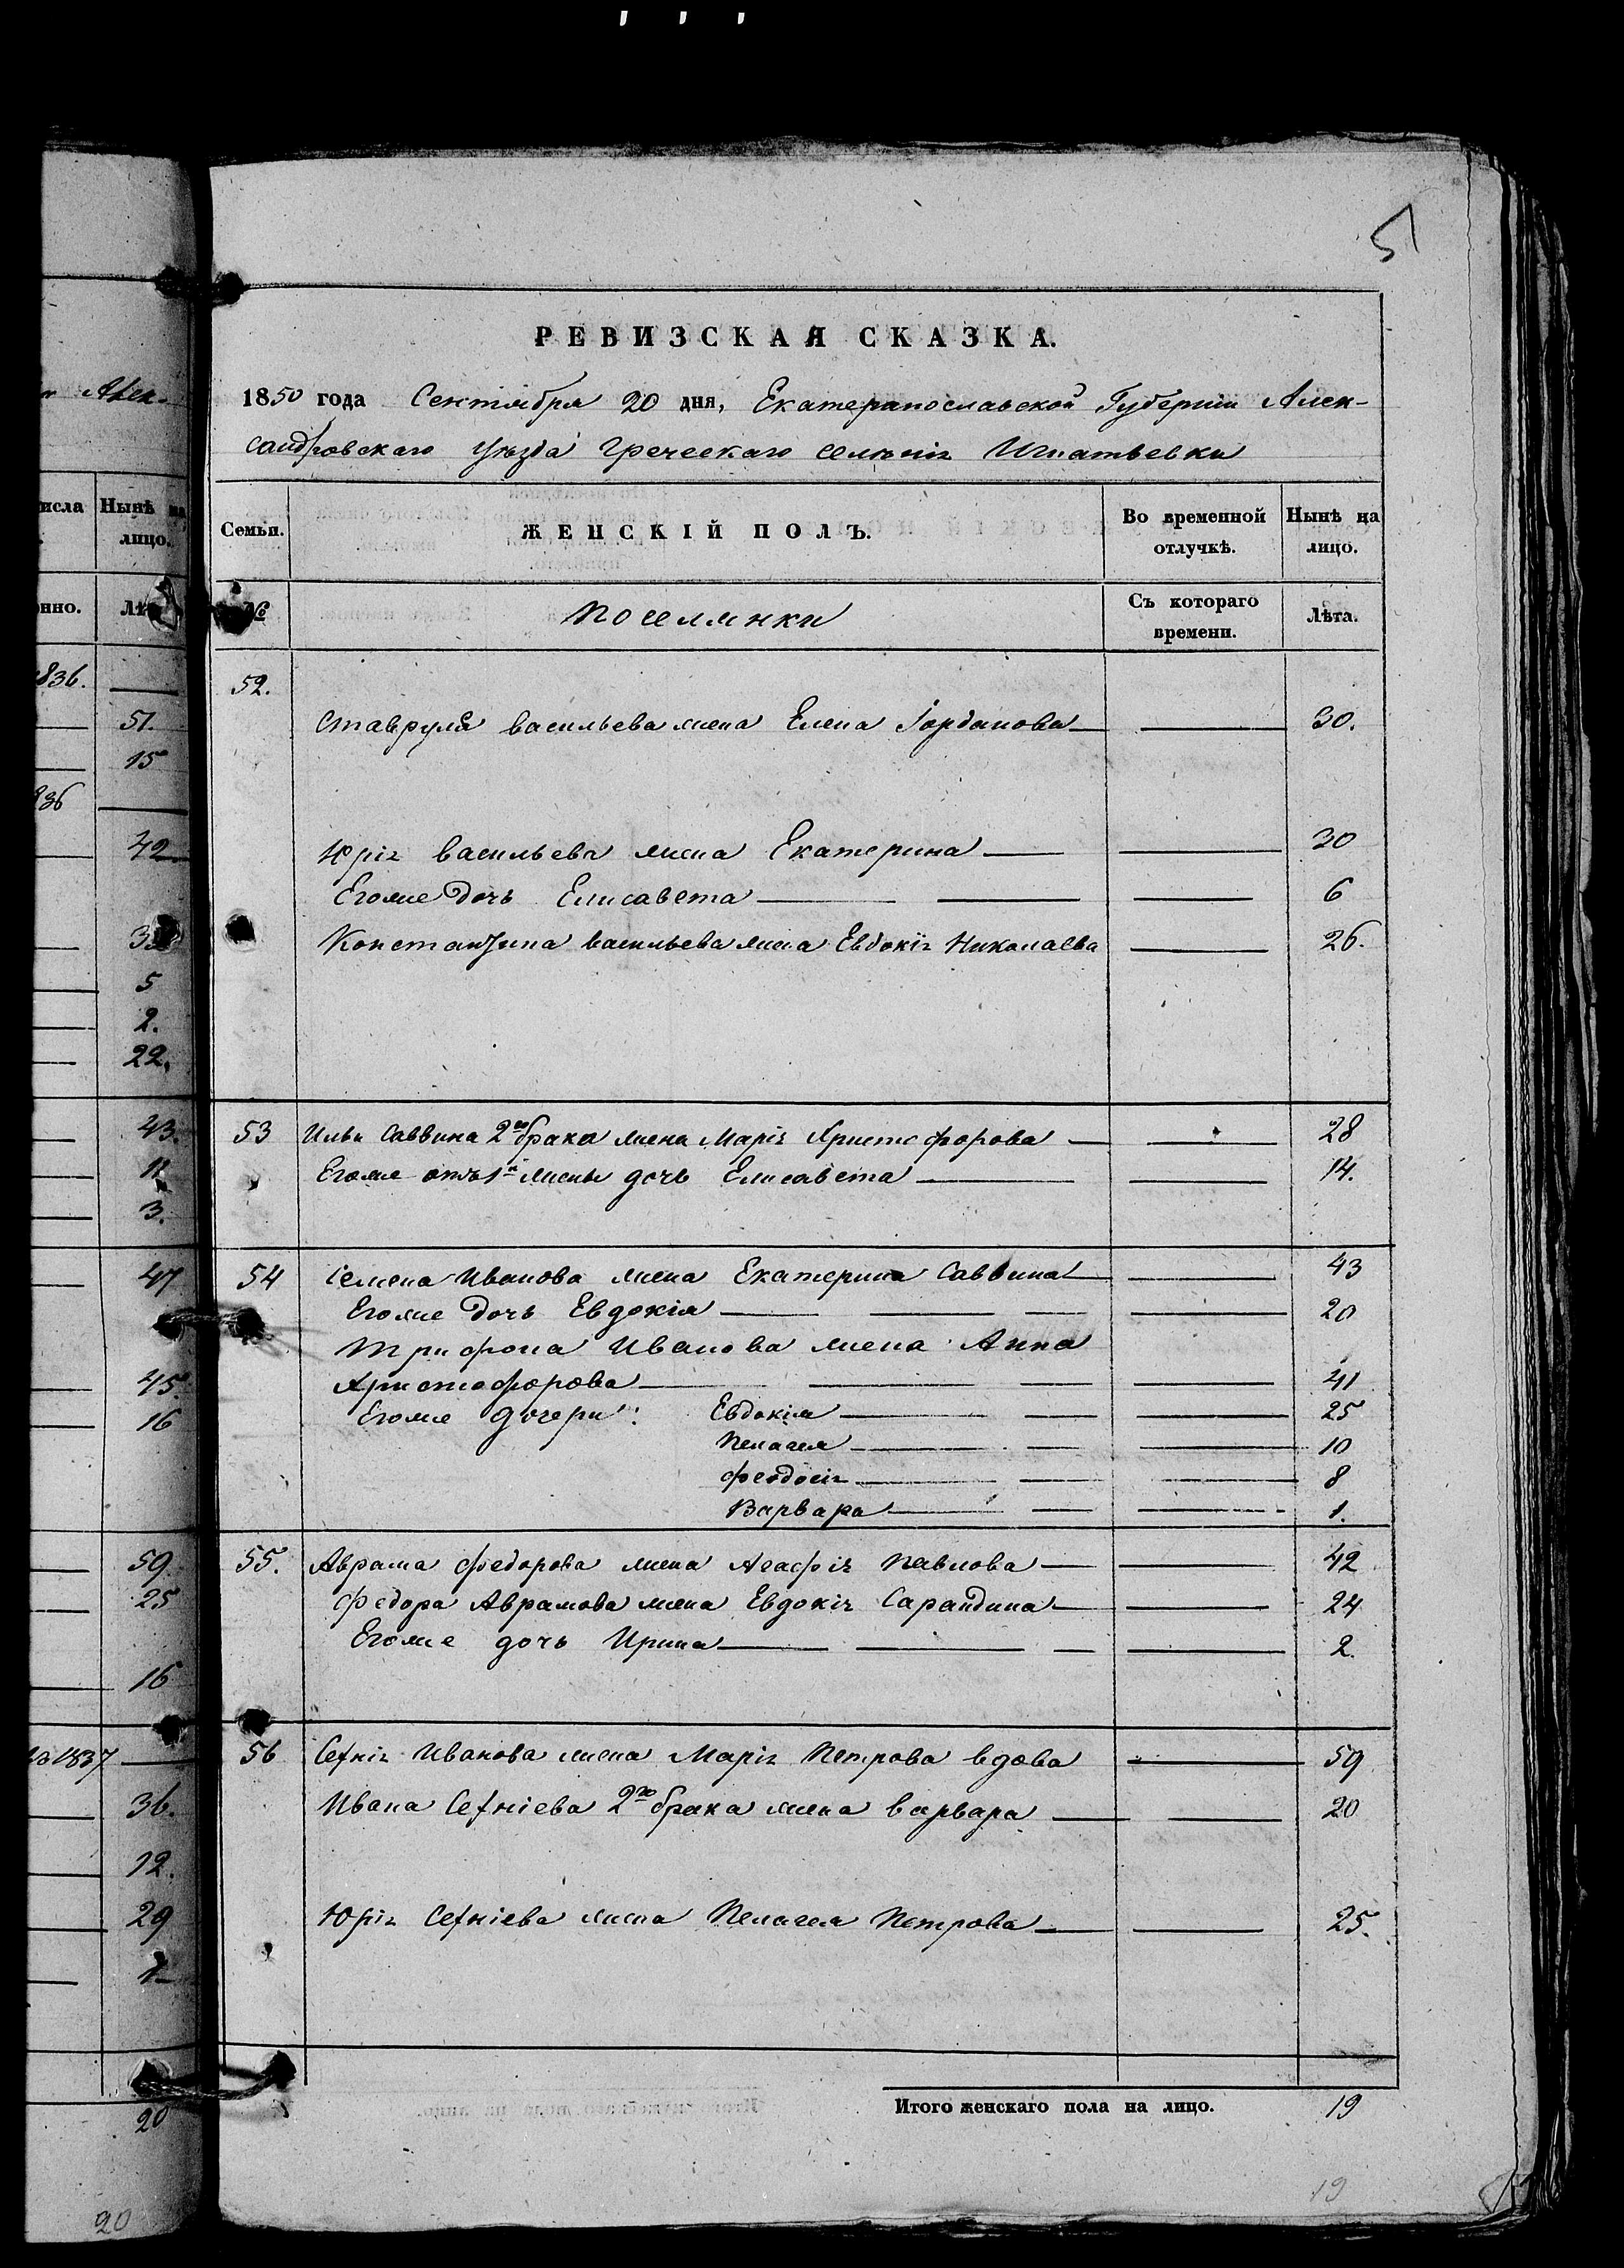 51
РЕВИЗСКАЯ СКАЗКА.
1850 года Сентября 20 дня, Екатеринославской Губернии Алек-
сандровскаго уѣзда Греческаго селенія Игнатьевки
Семьи. ЖЕНСКІЙ ПОЛЪ. Во временной отлучкѣ. Нынѣ на лицо.
№ Поселянки Съ котораго времени. Лѣта.
52.
Ставруля Васильева жена Елена Іорданова 30.
Юрія Васильева жена Екатерина 30
Егоже дочь Елисавета 6
Константина Васильева жена Евдокія Николаева 26.
53 Ильи Саввина 2го брака жена Марія Христофорова 28
Егоже отъ 1й жены дочь Елисавета 14.
54 Семена Иванова жена Екатерина Саввина 43
Егоже дочь Евдокія 20
Трифона Иванова жена Анна
Христофорова 41
Егоже дочери: Евдокія 25
Пелагея 10
Феодосія 8
Варвара 1.
55. Аврама Федорова жена Агафія Павлова 42
Федора Аврамова жена Евдокія Сарандина 24
Егоже дочь Ирина 2.
56 Иванова жена Марія Петрова вдова 59
Ивана 2го брака жена Варвара 20
Юрія жена Пелагея Петрова 25.
Итого женскаго пола на лицо. 19
19
Алек-
исла Нынѣ на лицо.
нно. Лѣ
836.
51.
15
836
42
5
2.
22.
43.
3.
47
45
16
59.
25
16
1837
36.
12.
29
20
20